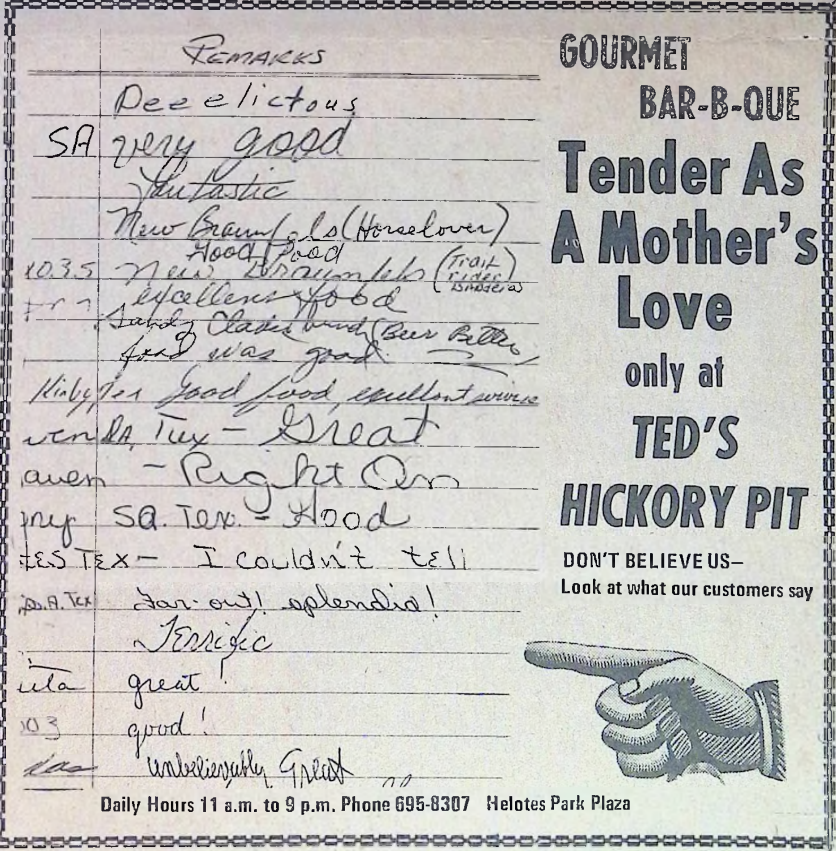 REMARKS
Deeelictous
SA very good
fantastic
New Braunfels (Horselover)
Good Food
New Braunfels (Trail rider
excellent food
Sandy (Beer Belle
food was good
Kirby Tex good food, excellent service
SA, Tex - Great
aven - Right On
SA. Tex. - Good
TES TEX - I couldn't tell
S.A. Tex Far-out! splendid!
Terrific
great!
03 good!
unbelievably Great
GOURMET
BAR-B-QUE
Tender As
A Mother's
Love
only at
TED'S
HICKORY PIT
DON'T BELIEVE US—
Look at what our customers say
Daily Hours 11 a.m. to 9 p.m. Phone 695-8307 Helotes Park Plaza